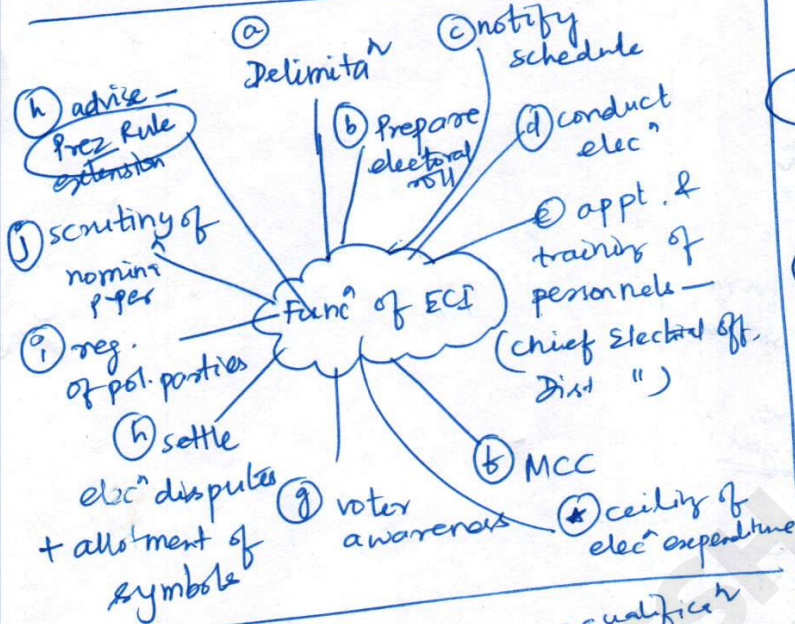 (a)
Delimitaⁿ
(b) Prepare
electoral
roll
(c) notify
schedule
(d) conduct
elecⁿ
(e) appt. &
training of
personnels —
(Chief Electoral Off.
Dist ")
(f) MCC
(*) ceiling of
elecⁿ expenditure
(g) voter
awareness
(h) settle
elecⁿ disputes
+ allotment of
symbols
(i) reg.
of pol. parties
(j) scrutiny of
nominaⁿ
(h) advise —
Prez Rule
extension
Funcⁿ of ECI
qualificaⁿ
SH